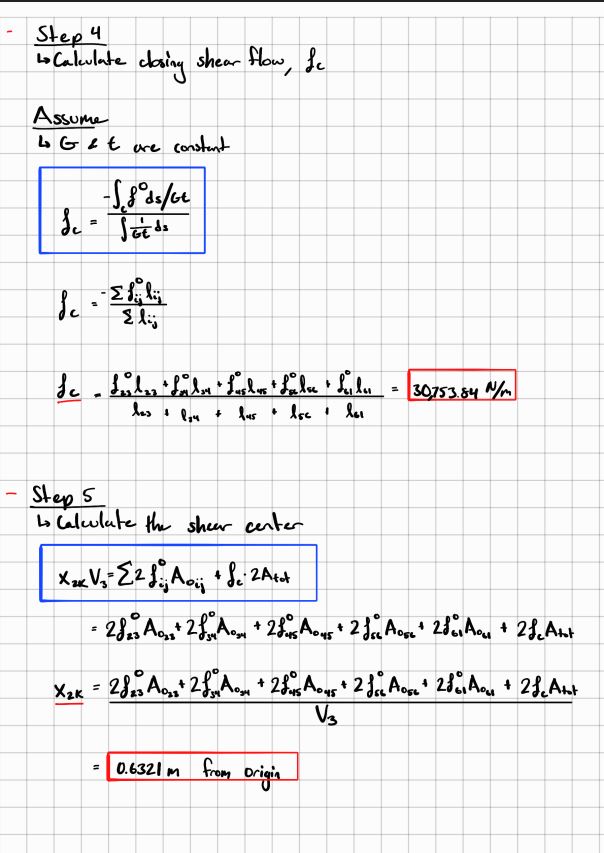 - Step 4
↳ Calculate closing shear flow, f_c
Assume
↳ G & t are constant
f_c = -∫_c f° ds/Gt / ∫ 1/Gt ds
f_c = -Σ f°_ij l_ij / Σ l_ij
f_c = f°_23 l_23 + f°_34 l_34 + f°_45 l_45 + f°_56 l_56 + f°_61 l_61 / l_23 + l_34 + l_45 + l_56 + l_61 = 30,753.84 N/m
- Step 5
↳ Calculate the shear center
X_2K V_3 = Σ 2 f°_ij A_0ij + f_c · 2A_tot
= 2f°_23 A_023 + 2f°_34 A_034 + 2f°_45 A_045 + 2f°_56 A_056 + 2f°_61 A_061 + 2f_c A_tot
X_2K = 2f°_23 A_023 + 2f°_34 A_034 + 2f°_45 A_045 + 2f°_56 A_056 + 2f°_61 A_061 + 2f_c A_tot / V_3
= 0.6321 m from origin